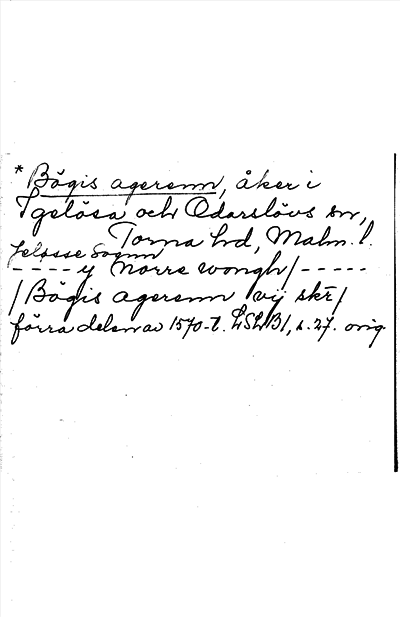 * Bögis agerenn, åker i
Igelösa och Odarslövs snr,
Torna hd, Malm. l.
Jelösse Sognn
---- y Norre wongh/-----
/Bögis agerenn vij skr/
förra delen av 1570-t. LSLB1, s. 27. orig.